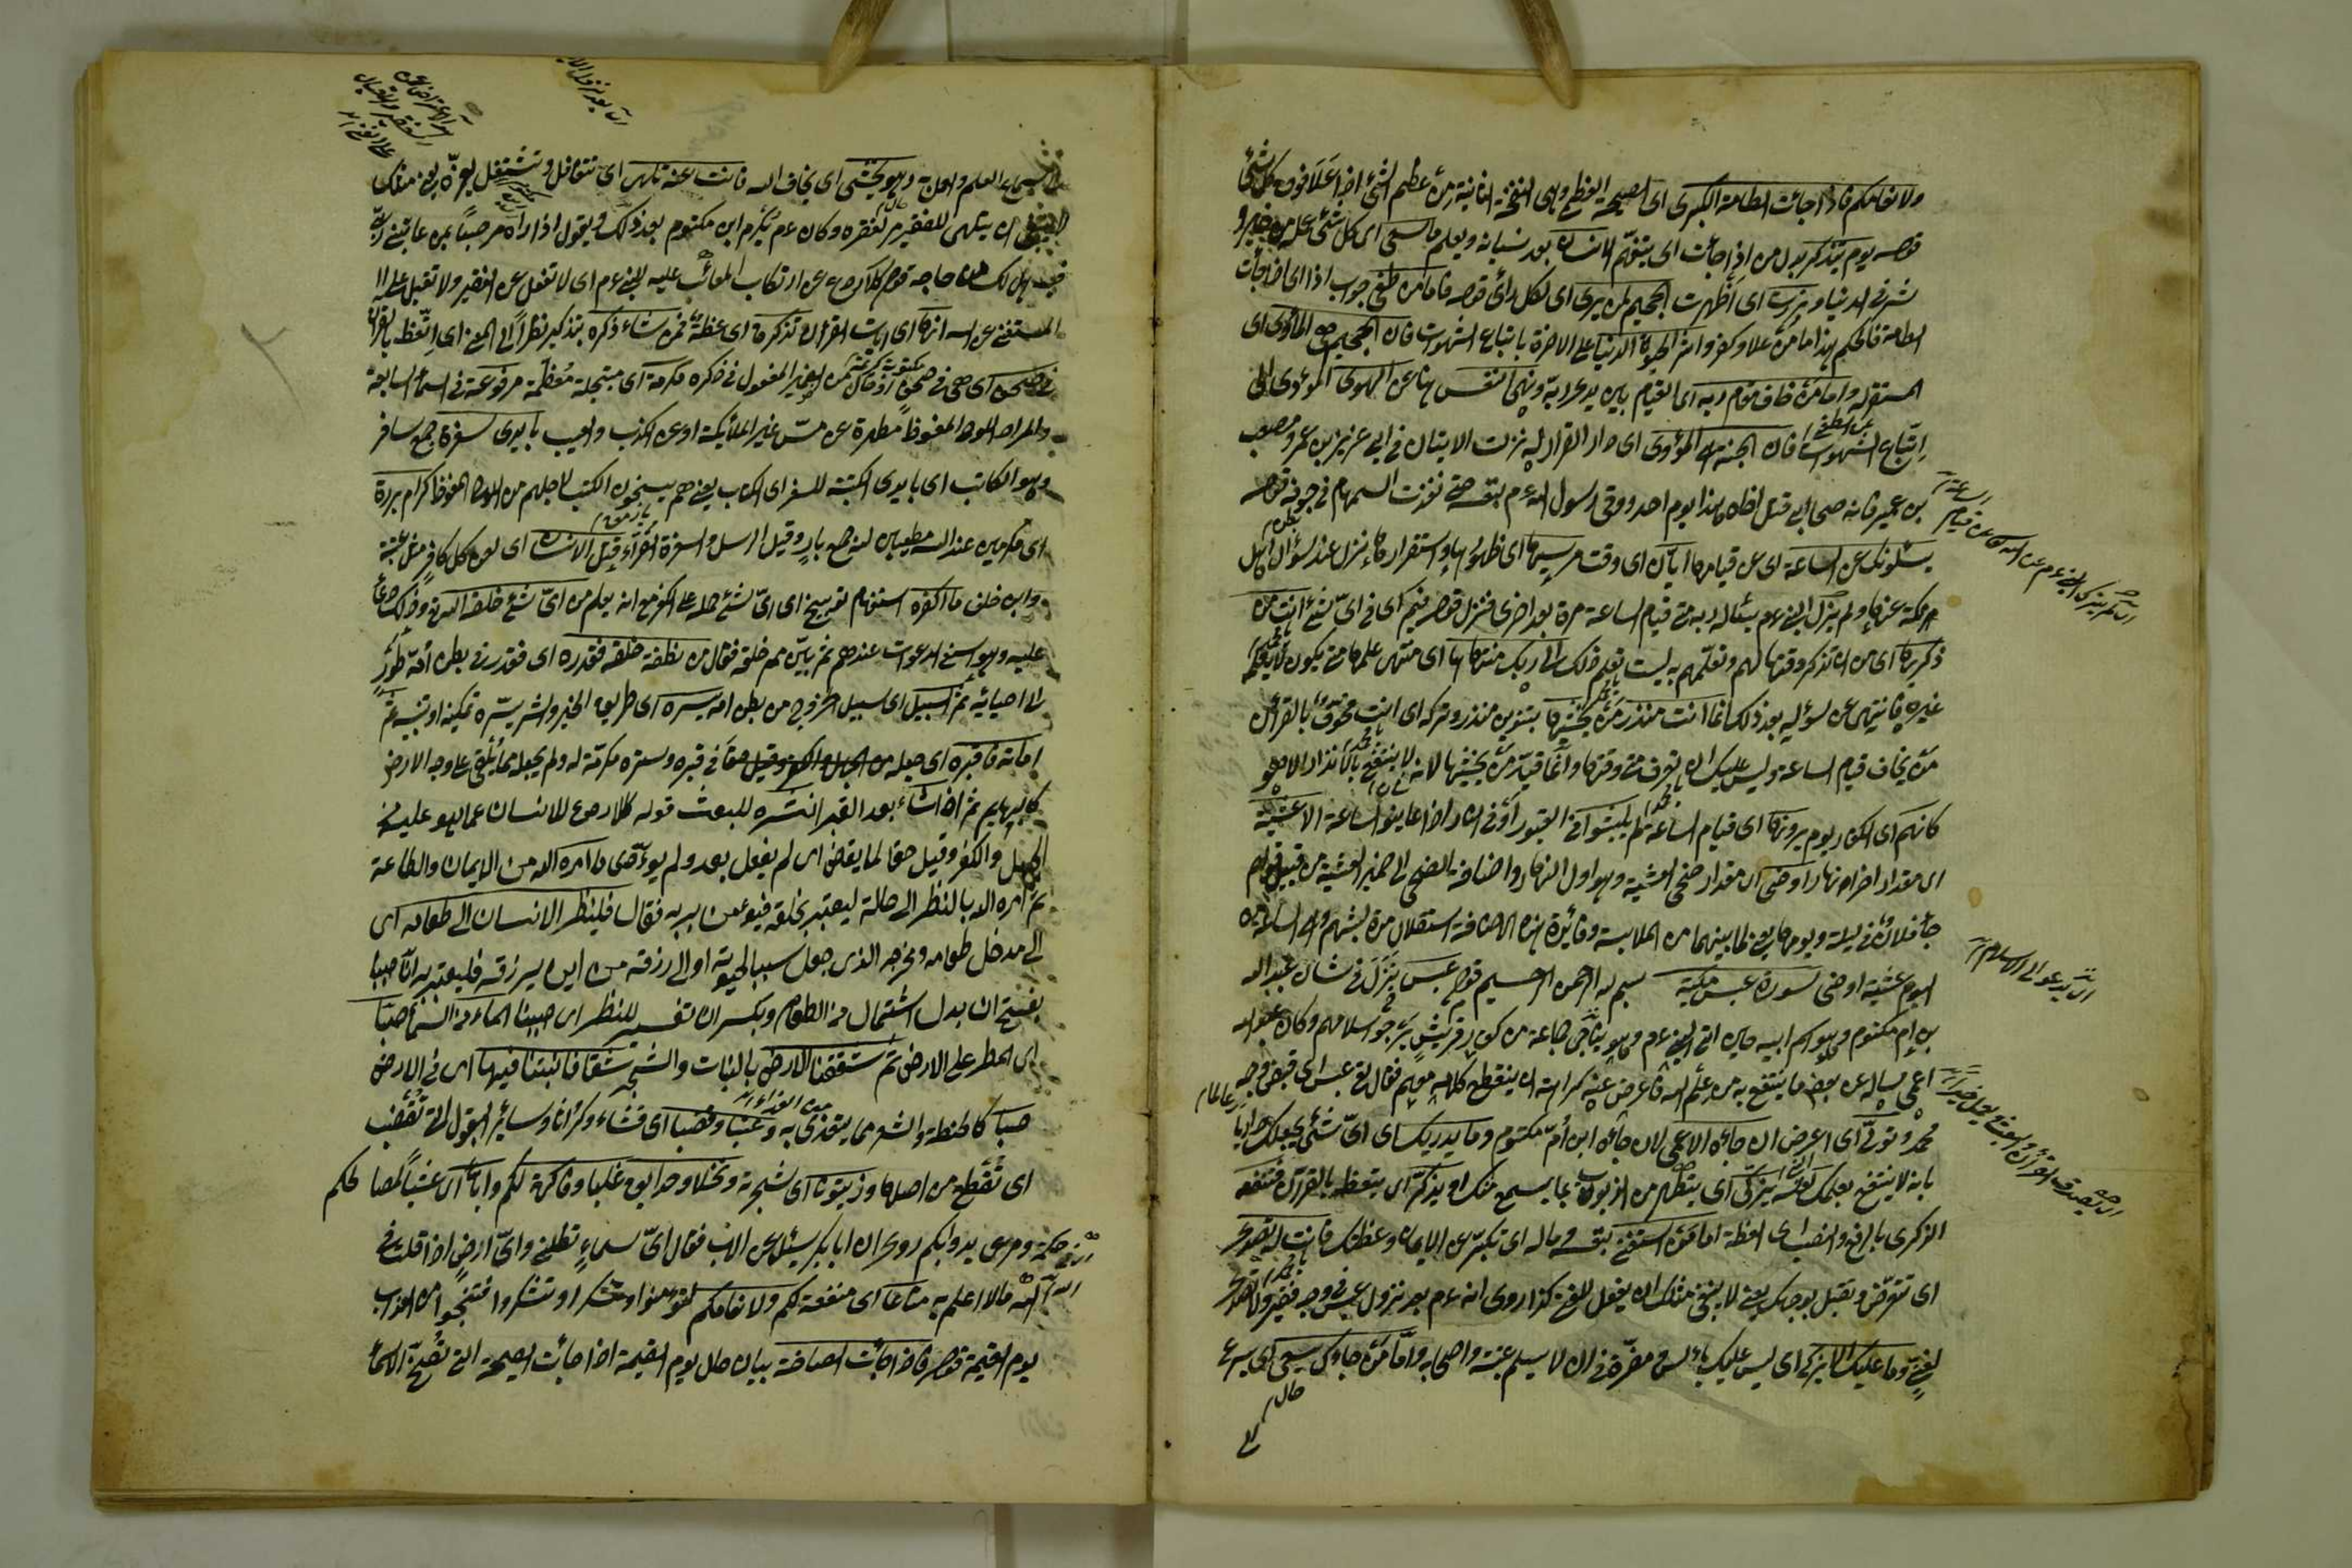 ولانعامكم فاذا جائت الطامة الكبرى اى الصيحة العظمى وهى النفخة الثانية من طم الشئ اذا علا فوق كل شئ
قوله يوم يتذكر بدل من اذا جائت اى يتفهم الانسان بعد نسيانه ويعلم ما سعى اى كل شئ عمله من خير و
شر فى الدنيا وبرزت اى أظهرت الجحيم لمن يرى اى لكل رائ قوله فاما من طغى جواب اذا اى اذا جائت
الطامة فالحكم هذا اما من علا وكفر واثر الحيوة الدنيا على الاخرة باتباع الشهوات فان الجحيم هى المأوى اى
المستقر له واما من خاف مقام ربه اى القيام بين يدى ربه ونهى النفس هنا عن الهوى المؤدى الى
اتباع الشهوات فان الجنة هى المأوى اى دار القرار له نزلت الايتان فى ابى عزيز بن عمر ومصعب
بن عمير فانه صحابى قتل اخاه هذا يوم احد ووقى رسول الله ءم بنفسه حتى نفذت السهام فى جوفه قوله
يسئلونك عن الساعة اى عن قيامها ايان اى وقت مرسيها اى ظهورها واستقرارها نزل عند سؤال اهل
مكة عنها ولم يزل النبى ءم يسئال ربه متى قيام الساعة مرة بعد اخرى فنزل قوله فيم اى فى اى شئ انت من
ذكريها اى من ان تذكر وقتها لهم وتعلمهم به ليست تعلم ذلك الى ربك منتهاها اى منتهى علمها متى يكون لا يعلم
غيره فانتهى عن سؤاله بعد ذلك انما انت منذر من يخشيها بتنوين منذر وتركه اى انت مخوف بالقرأن
من يخاف قيام الساعة وليس عليك ان تعرف متى وقتها وانما قيد من يخشيها لانه لا ينتفع بالانذار الا هو
كانهم اى الكفار يوم يرونها اى قيام الساعة لم يلبثوا فى القبور او فى الدنيا اذا عاينوا الساعة الا عشية
اى مقدار اخر نهار او ضحى اى مقدار ضحى العشية وهو اول النهار واضافة الضحى الى ضمير العشية من قبيل قولهم
جاء فلان فى ليلة ويومها يعنى لما بينهما من الملابسة وفائدة هذه الاضافة استقلال مدة لبثهم
اليوم عشية او ضحى سورة عبس مكية بسم الله الرحمن الرحيم قوله عبس نزل فى شأن عبد الله
بن ام مكتوم وهو اسم ابيه حين اتى النبى ءم وهو يناجى جماعة من كفار قريش يرجو اسلامهم وكان عبد الله
اعمى يسئاله عن بعض ما ينتفع به من علم الله فاعرض عنه كراهة ان ينقطع كلامه معهم فقال تعالى عبس اى قبض وجهه
محمد وتولى اى اعرض ان جاءه الاعمى لان جاءه ابن أم مكتوم وما يدريك اى اى شئ يجعلك داريا
بانه لا ينتفع بعلمك لعله يزكى اى يتطهر من الذنوب بما يسمع منك او يذكر اى يتعظ بالقرأن فتنفعه
الذكرى بالرفع والنصب اى العظة اما من استغنى بنفسه وماله اى تكبر عن الايمان وعظتك فانت له تصدى
اى تتعرض وتقبل بوجهك يعنى لا ينبغى منك ان يفعل للغنى كذا روى انه ءم بعد نزول عبس فى وجه فقير ولا تصدى
لغنى وما عليك الا يزكى اى ليس عليك بأس ومضرة فى ان لا يسلم عتبة واصحابه واما من جاءك يسعى اى يسرع
حال
عن الطغى
الى يدعو الى الاسلام
لسماع العلم والحاجة وهو يخشى اى يخاف الله فانت عنه تلهى اى تتغافل وتشتغل بغيره يعنى مثلك
لا ينبغى ان يتلهى للفقير لفقره وكان ءم يكرم ابن مكتوم بعد ذلك ويقول اذا رآه مرحبا بمن عاتبنى ربى
فيه هل لك من حاجة قوله كلا ردع عن ارتكاب المعاتب عليه للنبى ءم اى لا تفعل عن الفقير ولا تقبل على
المستغنى عن الله انها اى ايات القرأن تذكرة اى عظة فمن شاء ذكره بتذكير نظرا الى المعنى اى اتعظ بالقرأن
فى صحف اى هى فى صحف اذ حال من الضمير المفعول فى ذكره مكرمة اى مبتجلة معظمة مرفوعة فى السماء السابعة
والمراد اللوح المحفوظ مطهرة عن مس غير الملائكة او عن الكذب والعيب بايدى سفرة جمع سافر
وهو الكاتب اى بايدى الكتبة للسفر اى الكتاب يعنى هم ينسخون الكتب لاجلهم من اللوح المحفوظ كرام بررة
اى مكرمين عند الله مطيعين له جمع بار وقيل الرسل والسفرة القراء قتل الانسان اى لعن كل كافر مثل عتبة
وابن خلف ما اكفره استفهام توبيخ اى اى شئ حمله على الكفر مع انه يعلم من اى شئ خلقه الله
عليه وهو اشنع الدعوات عندهم ثم بين مم خلقه فقال من نطفة خلقه فقدره اى فقدره فى بطن أمه طورا
الى احيائه ثم السبيل اى سبيل الخروج من بطن امه يسره اى طريق الخير والشر يسره تمكينه او تبيينه ثم
اماته فاقبره اى جعله فى قبره وستره مكرمة له ولم يجعله مما يلقى على وجه الارض
كالبهايم ثم اذا شاء بعد القبر انشره للبعث قوله كلا ردع للانسان عما هو عليه من
الجهل والكفر وقيل حقا لما يقض اى لم يفعل بعد ولم يوءدى ما امره الله من الايمان والطاعة
ثم امره الله بالنظر الى حاله ليعتبر بخلقه فيؤمن بربه فقال فلينظر الانسان الى طعامه اى
الى مدخل طعامه ومخرجه الذى جعل سببا لحيوته او الى رزقه من اين يرزقه فليعتبر به انا صببنا
بفتح ان بدل اشتمال من الطعام وبكسر ان تفسير للنظر اى صببنا الماء من السماء صبا
اى المطر على الارض ثم شققنا الارض بالنبات والشجر شقا فانبتنا فيها اى فى الارض
حبا كالحنطة والشعير مما يتغذى به وعنبا وقضبا اى قثاء وكراثا وسائر البقول التى تقضب
اى تقطع من اصلها وزيتونا اى شجرته ونخلا وحدايق غلبا وفاكهة لكم وابا اى عشبا لمصالحكم
ومرعى بدوابكم روى ان ابا بكر سئل عن الاب فقال اى سماء تظلنى واى ارض اذا قلت فى
ما لا اعلم به متاعا اى منفعة لكم ولانعامكم لتؤمنوا وتشكروا فتنجوا من العذاب
يوم القيمة قوله فاذا جائت الصاخة بيان حال يوم القيمة اذا جائت الصيحة التى تصخ الاسماع